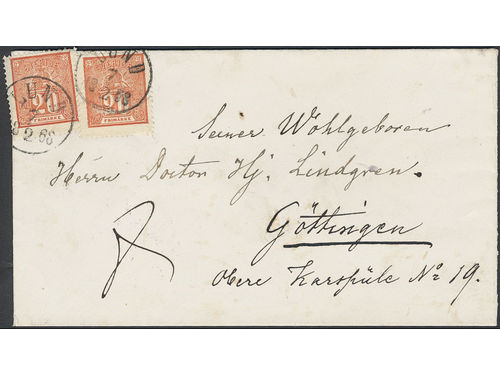 20
FRIMÄRKE
20
FRIMÄRKE
Seiner Wohlgeboren
Herrn Doctor Hj. Lindgren.
Göttingen
Obere Karspüle No 19.